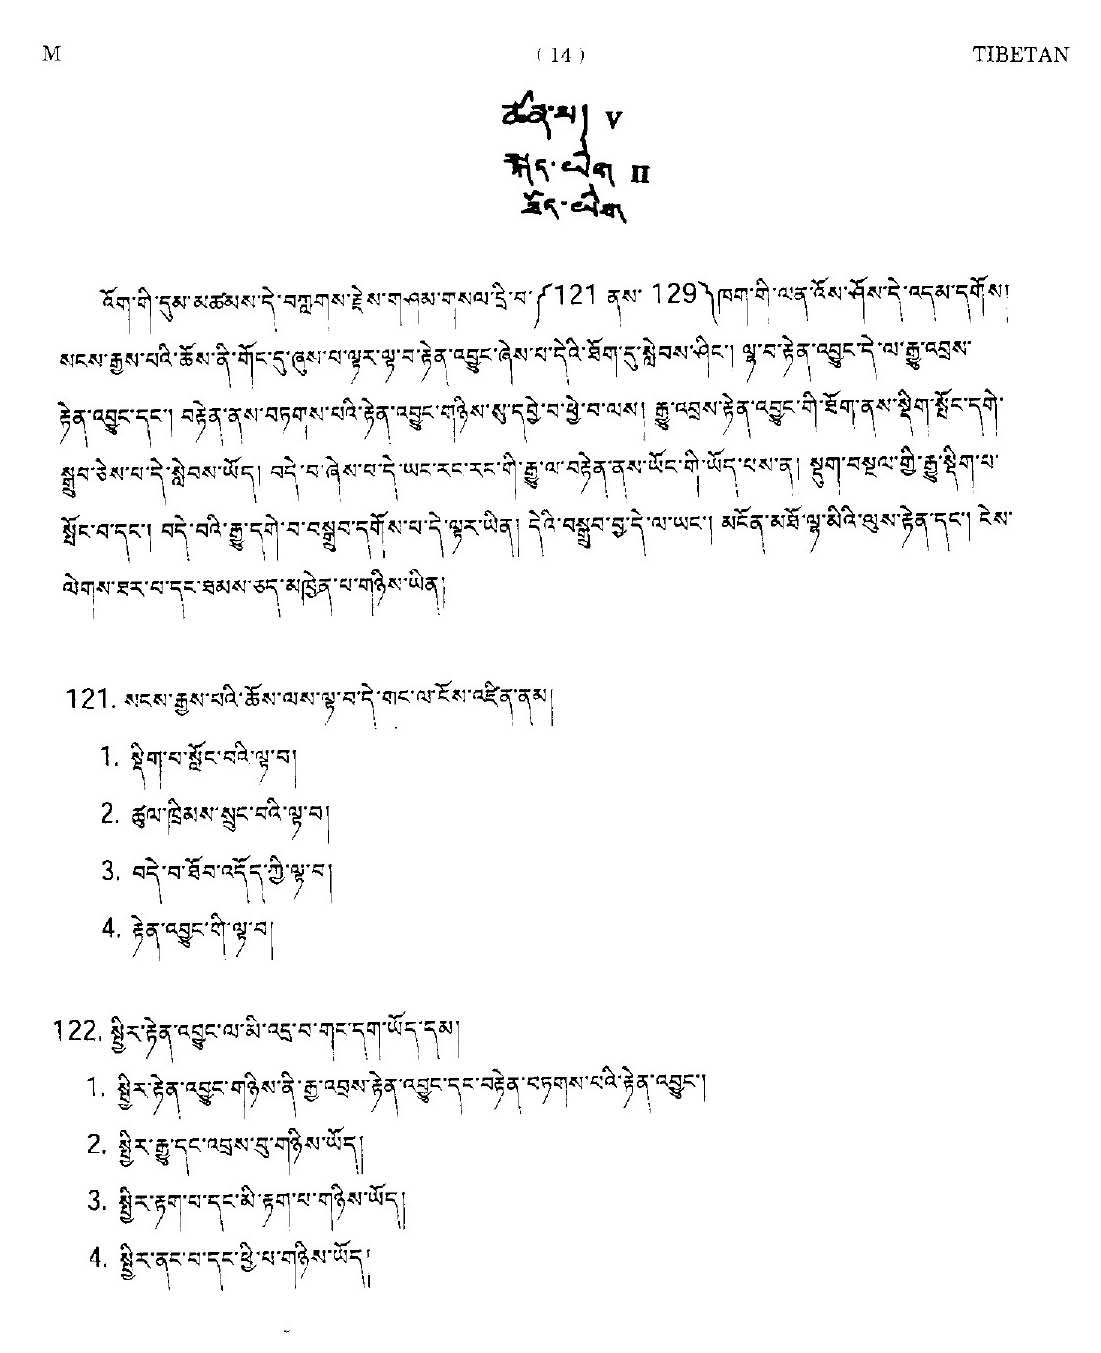 M ( 14 ) TIBETAN
ཚན་པ། V
སྐད་ཡིག II
བོད་ཡིག
འོག་གི་དུམ་མཚམས་དེ་བཀླགས་རྗེས་གཤམ་གསལ་དྲི་བ་(121 ནས་ 129)ཁག་གི་ལན་འོས་ཤོས་དེ་འདམ་དགོས།
སངས་རྒྱས་པའི་ཆོས་ནི་གོང་དུ་ཞུས་པ་ལྟར་ལྟ་བ་རྟེན་འབྱུང་ཞེས་པ་དེའི་ཐོག་དུ་སླེབས་ཤིང་། ལྟ་བ་རྟེན་འབྱུང་དེ་ལ་རྒྱུ་འབྲས་
རྟེན་འབྱུང་དང་། བརྟེན་ནས་བཏགས་པའི་རྟེན་འབྱུང་གཉིས་སུ་དབྱེ་བ་ཕྱེ་བ་ལས། རྒྱུ་འབྲས་རྟེན་འབྱུང་གི་ཐོག་ནས་སྡིག་སྤོང་དགེ་
སྒྲུབ་ཅེས་པ་དེ་སླེབས་ཡོད། བདེ་བ་ཞེས་པ་དེ་ཡང་རང་རང་གི་རྒྱུ་ལ་བརྟེན་ནས་ཡོང་གི་ཡོད་པས་ན། སྡུག་བསྔལ་གྱི་རྒྱུ་སྡིག་པ་
སྤོང་བ་དང་། བདེ་བའི་རྒྱུ་དགེ་བ་བསྒྲུབ་དགོས་པ་དེ་ལྟར་ཡིན། དེའི་བསྒྲུབ་བྱ་དེ་ལ་ཡང་། མངོན་མཐོ་ལྷ་མིའི་ལུས་རྟེན་དང་། ངེས་
ལེགས་ཐར་པ་དང་ཐམས་ཅད་མཁྱེན་པ་གཉིས་ཡིན།
121. སངས་རྒྱས་པའི་ཆོས་ལས་ལྟ་བ་དེ་གང་ལ་ངོས་འཛིན་ནམ།
1. སྡིག་པ་སྤོང་བའི་ལྟ་བ།
2. ཚུལ་ཁྲིམས་སྲུང་བའི་ལྟ་བ།
3. བདེ་བ་ཐོབ་འདོད་ཀྱི་ལྟ་བ།
4. རྟེན་འབྱུང་གི་ལྟ་བ།
122. སྤྱིར་རྟེན་འབྱུང་ལ་མི་འདྲ་བ་གང་དག་ཡོད་དམ།
1. སྤྱིར་རྟེན་འབྱུང་གཉིས་ནི་རྒྱ་འབྲས་རྟེན་འབྱུང་དང་བརྟེན་བཏགས་པའི་རྟེན་འབྱུང་།
2. སྤྱིར་རྒྱུ་དང་འབྲས་བུ་གཉིས་ཡོད།
3. སྤྱིར་རྟག་པ་དང་མི་རྟག་པ་གཉིས་ཡོད།
4. སྤྱིར་ནང་བ་དང་ཕྱི་པ་གཉིས་ཡོད།